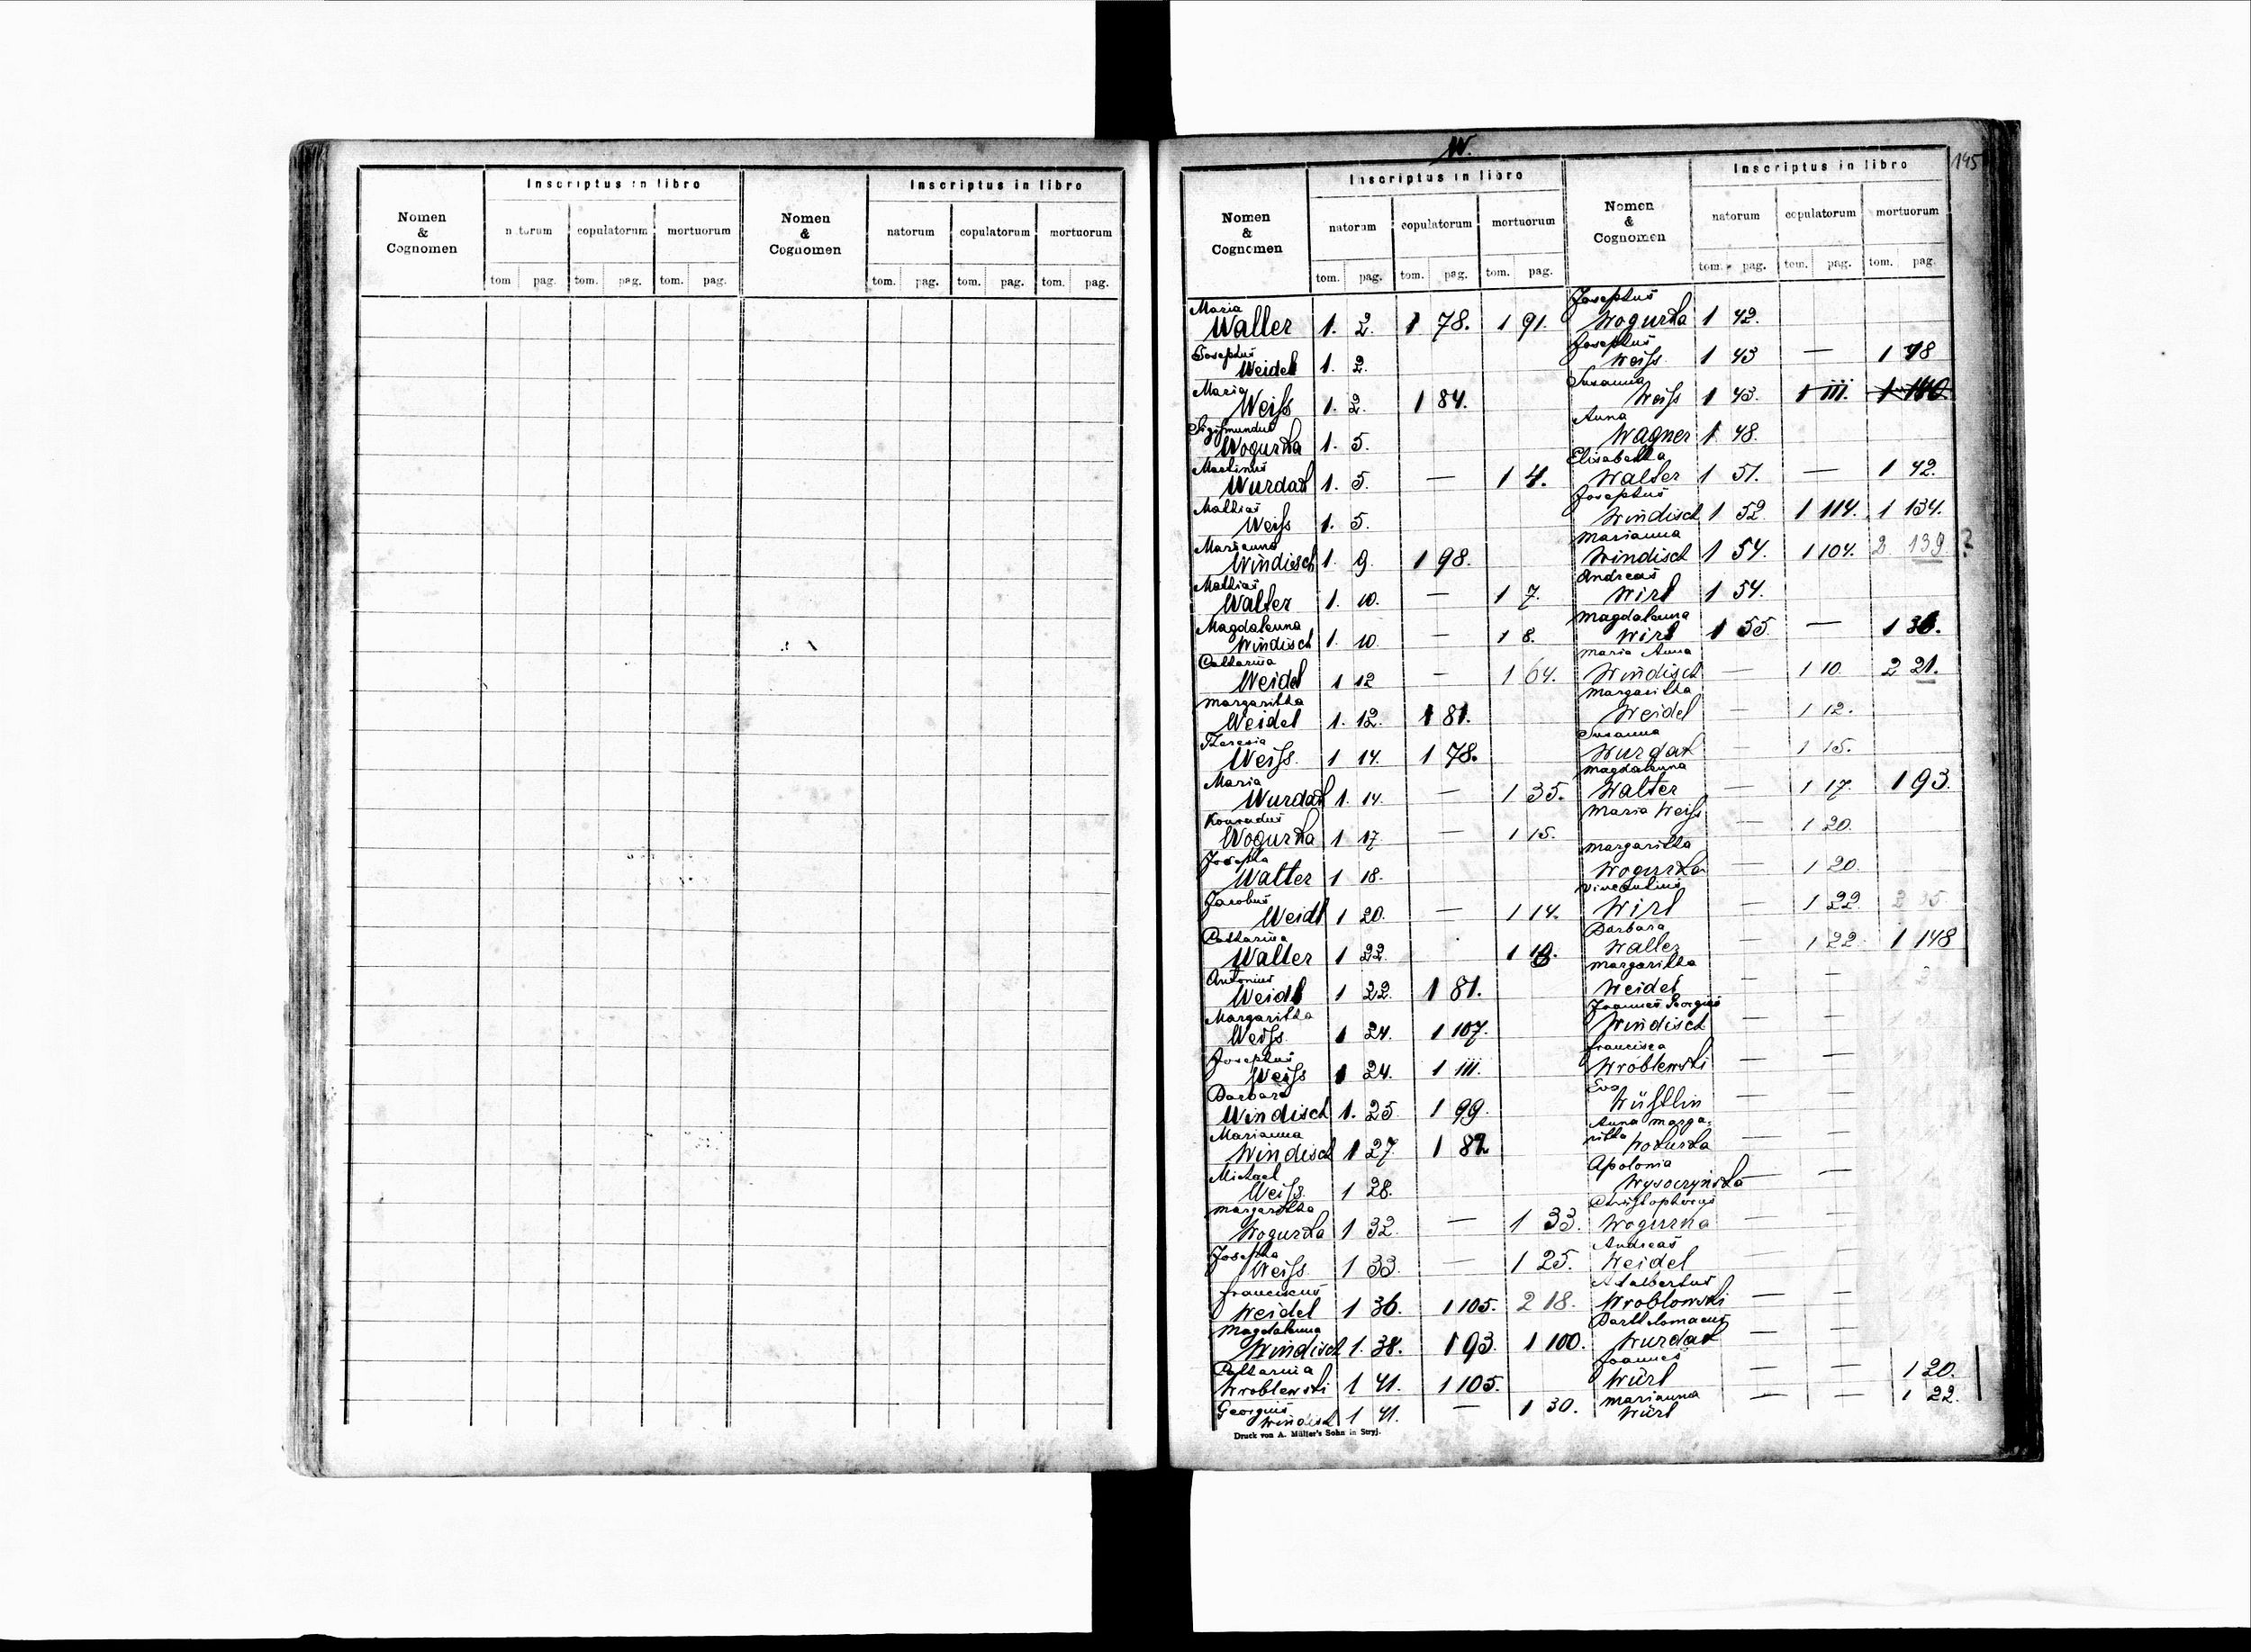 Inscriptus in libro
Inscriptus in libro
Nomen & Cognomen
natorum copulatorum mortuorum
Nomen & Cognomen
natorum copulatorum mortuorum
tom pag. tom. pag. tom. pag.
tom. pag. tom. pag. tom. pag.
W.
145
Inscriptus in libro
Inscriptus in libro
Nomen & Cognomen
natorum copulatorum mortuorum
Nomen & Cognomen
natorum copulatorum mortuorum
tom. pag. tom. pag. tom. pag.
tom. pag. tom. pag. tom. pag.
Maria
Walter 1. 2. 1 78. 1 91.
Josephus
Weidel 1. 2.
Maria
Weiss 1. 2. 1 84.
Sigismundus
Wogurka 1. 5.
Martinus
Wurdak 1. 5. — 1 4.
Mathias
Weiss 1. 5.
Marianna
Windisch 1. 9. 1 98.
Mathias
Walter 1. 10. — 1 7.
Magdalenna
Windisch 1. 10. — 1 8.
Catharina
Weidel 1 12 — 1 64.
Margaritha
Weidel 1. 12. 1 81.
Theresia
Weiss 1 14. 1 78.
Maria
Wurdak 1. 14. — 1 35.
Konradus
Wogurka 1 17 — 1 15.
Josepha
Walter 1 18.
Jacobus
Weidl 1 20. — 1 14.
Catharina
Walter 1 22.
Antonius
Weidl 1 22. 1 81.
Margaritha
Weiss 1 24. 1 107.
Josephus
Weiss 1 24. 1 111.
Barbara
Windisch 1. 25 1 99.
Marianna
Windisch 1 27. 1 82
Michael
Weiss 1 28.
Margaritha
Wogurka 1 32. — 1 33.
Josepha
Weiss 1 33. — 1 25.
Franciscus
Weidel 1 36. 1 105. 2 18.
Magdalenna
Windisch 1. 38. 1 93. 1 100.
Catharina
Wroblewski 1 41. 1 105.
Georgius
Windisch 1 41. — 1 30.
Josephus
Wogurka 1 42.
Josephus
Weiss 1 43 — 1 78
Susanna
Weiss 1 43. 1 111. 1 140.
Anna
Wagner 1 48.
Elisabetha
Walter 1 51. — 1 42.
Josephus
Windisch 1 52 1 114. 1 134.
Marianna
Windisch 1 54. 1 104. 2. 139. ?
Andreas
Wirl 1 54.
Magdalenna
Wirl 1 55 — 1 36.
Maria Anna
Windisch — 1 10. 2 21.
Margaritha
Weidel — 1 12.
Susanna
Wurdak — 1 15.
Magdalenna
Walter — 1 17. 1 93.
Maria Weiss
1 20.
Margaritha
Wogurka — 1 20.
Wirl — 1 22.
Barbara
Walter — 1 22. 1 148
Margaritha
Weidel — —
Joannes Georgius
Windisch — —
Francisca
Wroblewski — —
Eva
— —
Anna Marga-
ritha Wokurka — —
Apolonia
Wysoczynska — —
Christophorus
Wogurka — —
Andreas
Weidel — —
Adalbertus
Wroblowski — —
Bartholomaeus
Wurdak — —
Joannes
Würl — — 1 20.
Marianna
Würl — — 1 22.
Druck von A. Müller's Sohn in Stryj.